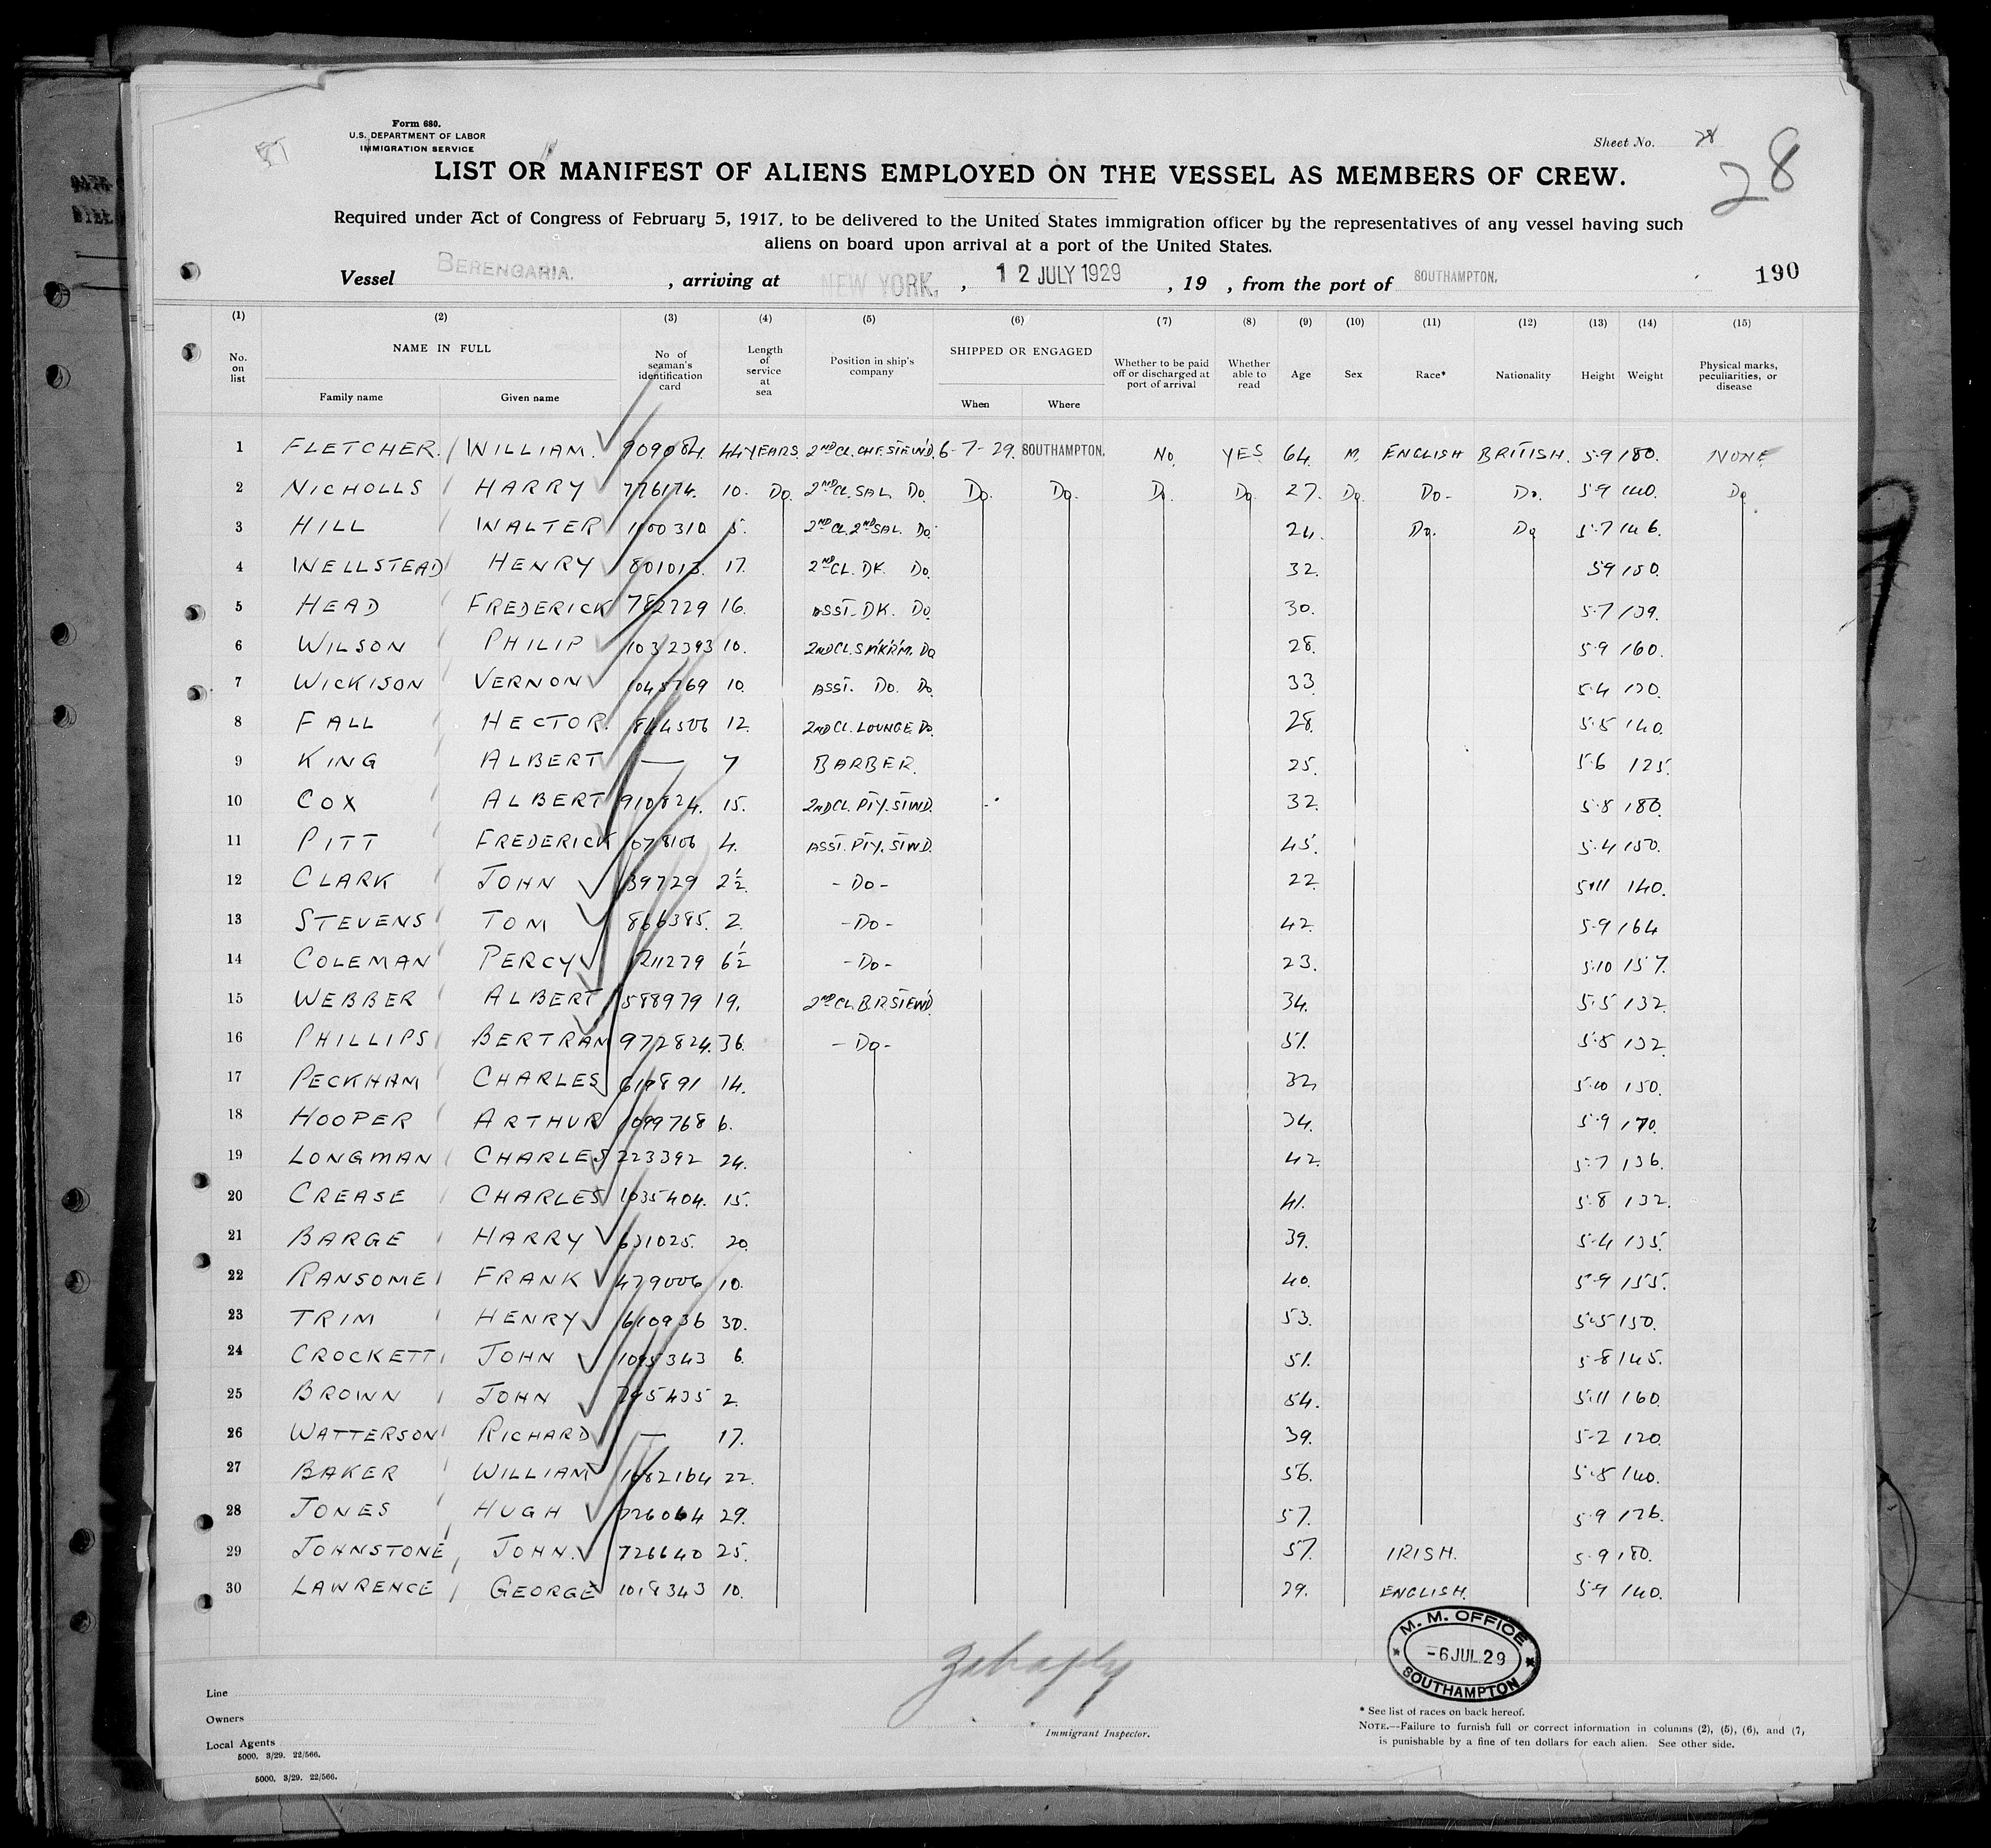 Form 680.
U.S. DEPARTMENT OF LABOR
IMMIGRATION SERVICE
Sheet No. 28
28
LIST OR MANIFEST OF ALIENS EMPLOYED ON THE VESSEL AS MEMBERS OF CREW.
Required under Act of Congress of February 5, 1917, to be delivered to the United States immigration officer by the representatives of any vessel having such
aliens on board upon arrival at a port of the United States.
Vessel BERENGARIA. , arriving at NEW YORK. , 12 JULY 1929 , 19 , from the port of SOUTHAMPTON. 190
(1) (2) (3) (4) (5) (6) (7) (8) (9) (10) (11) (12) (13) (14) (15)
No. on list NAME IN FULL Family name Given name No of seaman's identification card Length of service at sea Position in ship's company SHIPPED OR ENGAGED When Where Whether to be paid off or discharged at port of arrival Whether able to read Age Sex Race* Nationality Height Weight Physical marks, peculiarities, or disease
1 FLETCHER. WILLIAM. 909084. 44 YEARS 2ND CL. CHF. STEW'D. 6-7-29. SOUTHAMPTON. No. YES 64. M. ENGLISH BRITISH. 5-9 180. NONE
2 NICHOLLS HARRY 776174. 10. Do. 2ND CL. SAL. Do. Do. Do. D. Do. 27. Do. Do- Do. 5-9 140. Do
3 HILL WALTER 1100310 5. 2ND CL. 2ND SAL. Do. 24. Do. Do 5-7 146.
4 WELLSTEAD HENRY 801013. 17. 2ND CL. DK. Do. 32. 5-9 150.
5 HEAD FREDERICK 782729 16. ASST. DK. Do. 30. 5-7 139.
6 WILSON PHILIP 1032393 10. 2ND CL. SMK'R'M. Do 28. 5-9 160.
7 WICKISON VERNON 1045769 10. ASST. Do. Do. 33. 5-4 130.
8 FALL HECTOR. 844506 12. 2ND CL. LOUNGE. Do. 28. 5-5 140.
9 KING ALBERT — 7 BARBER. 25. 5-6 125.
10 COX ALBERT 910824. 15. 2ND CL. PTY. STWD. 32. 5-8 180.
11 PITT FREDERICK 078106 4. ASST. PTY. STWD. 45. 5-4 150.
12 CLARK JOHN 39729 2½ - Do - 22. 5-11 140.
13 STEVENS TOM 866385. 2. - Do - 42. 5-9 164
14 COLEMAN PERCY 211279 6½ - Do - 23. 5-10 157.
15 WEBBER ALBERT 588979 19. 2ND CL. B.R. STEW'D 34. 5-5 132
16 PHILLIPS BERTRAM 972824. 36. - Do - 51. 5-8 132.
17 PECKHAM CHARLES 619891 14. 32. 5-10 150.
18 HOOPER ARTHUR 1099768 6. 34. 5-9 170.
19 LONGMAN CHARLES 223392 24. 42. 5-7 136.
20 CREASE CHARLES 1035404. 15. 41. 5-8 132.
21 BARGE HARRY 631025. 20. 39. 5-4 135.
22 RANSOME FRANK 479006 10. 40. 5-9 155.
23 TRIM HENRY 610936 30. 53. 5-5 150.
24 CROCKETT JOHN 1095343 6. 51. 5-8 145.
25 BROWN JOHN 795435 2. 54. 5-11 160.
26 WATTERSON RICHARD — 17. 39. 5-2 120.
27 BAKER WILLIAM 1082164 22. 56. 5-8 140.
28 JONES HUGH 726064 29. 57. 5-9 176.
29 JOHNSTONE JOHN. 726640 25. 57. IRISH. 5-9 180.
30 LAWRENCE GEORGE 1018343 10. 29. ENGLISH. 5-9 140.
M. M. OFFICE
-6 JUL 29
SOUTHAMPTON
Line
Owners
Local Agents
5000. 3/29. 22/566.
5000. 3/29. 22/566.
Immigrant Inspector.
* See list of races on back hereof.
NOTE.—Failure to furnish full or correct information in columns (2), (5), (6), and (7,
is punishable by a fine of ten dollars for each alien. See other side.